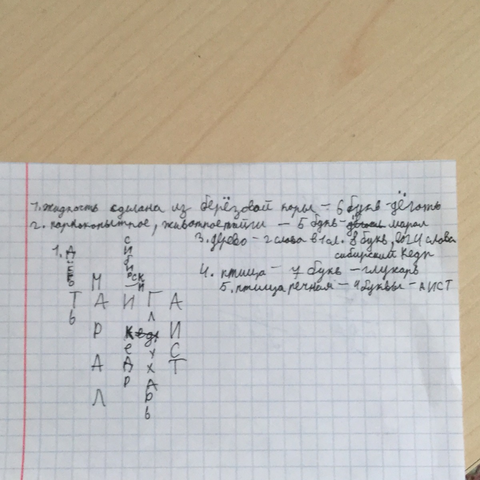 1. жидкость сделана из берёзовой коры – 6 букв – дёготь
2. парнокопытное, животное тайги – 5 букв – марал
3. дерево – 2 слова в 1 сл. 8 букв, во 2 4 слова
сибирский Кедр
4. птица – 7 букв – глухарь
5. птица речная – 4 буквы – АИСТ
1. Д
Ё
Г
О
Т
Ь
М
А
Р
А
Л
С
И
Б
И
Р
СК
И
Й
К
Е
Д
Р
Г
Л
У
Х
А
Р
Ь
А
И
С
Т